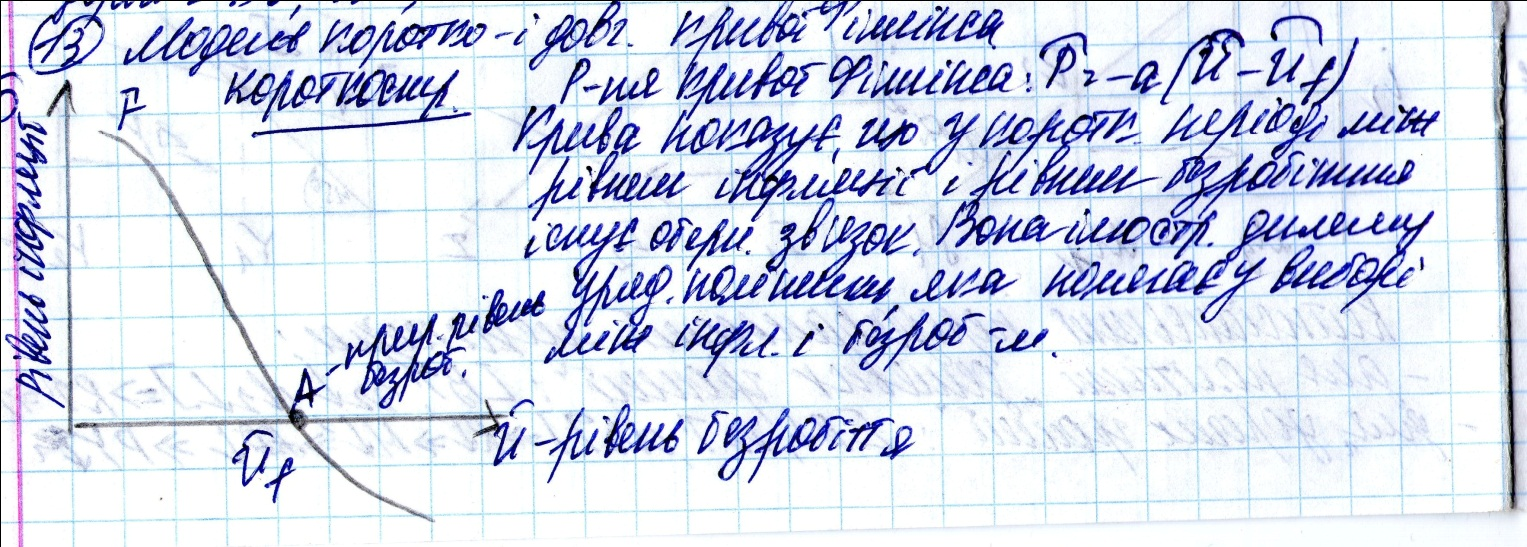 13 Моделі коротко- і довг. кривої Філліпса
короткостр.
Р-ня кривої Філліпса: P = -a (U - Uf)
Крива показує, що у коротк. періоді між
рівнем інфляції і рівнем безробіття
існує оберн. зв'язок. Вона ілюстр. дилему
уряд. політики, яка полягає у виборі
між інфл. і безроб-м.
F
Рівень інфляції
A - прир. рівень
безроб.
Uf
U - рівень безробіття